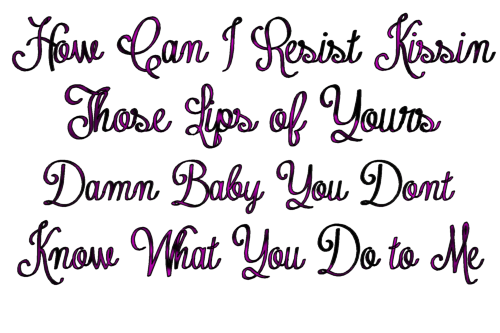 How Can I Resist Kissin
Those Lips of Yours
Damn Baby You Dont
Know What You Do to Me